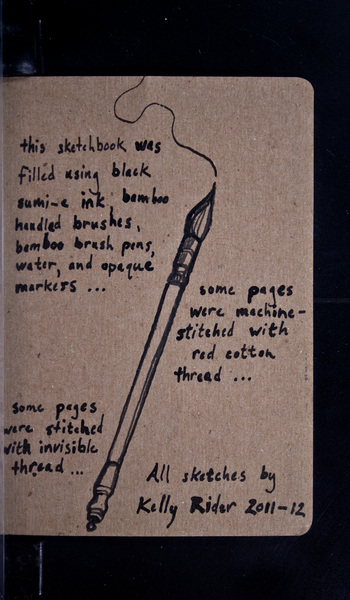 this sketchbook was
filled using black
sumi-e ink, bamboo
handled brushes,
bamboo brush pens,
water, and opaque
markers ...
some pages
were machine-
stitched with
red cotton
thread ...
some pages
were stitched
with invisible
thread ...
All sketches by
Kelly Rider 2011-12